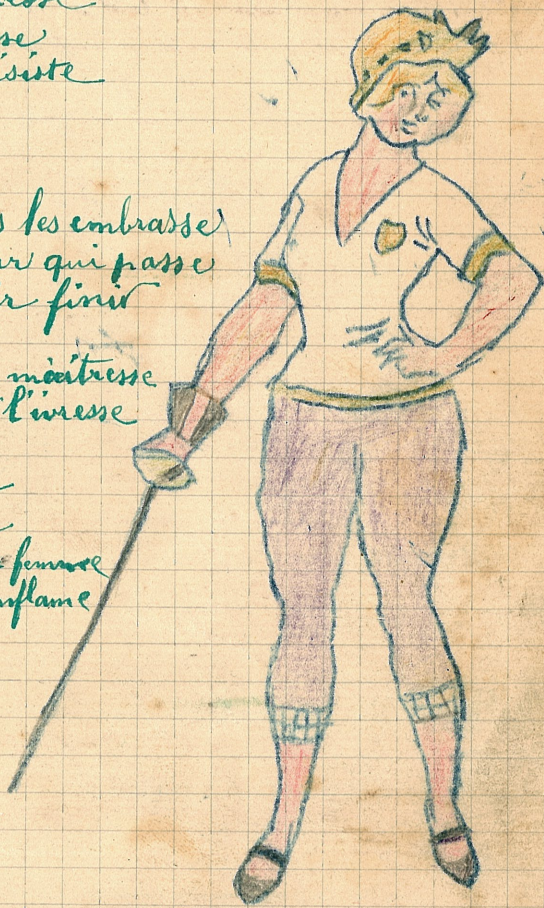 se
isiste
les embrasse
ur qui passe
r finir
maîtresse
l'ivresse
femme
nflame